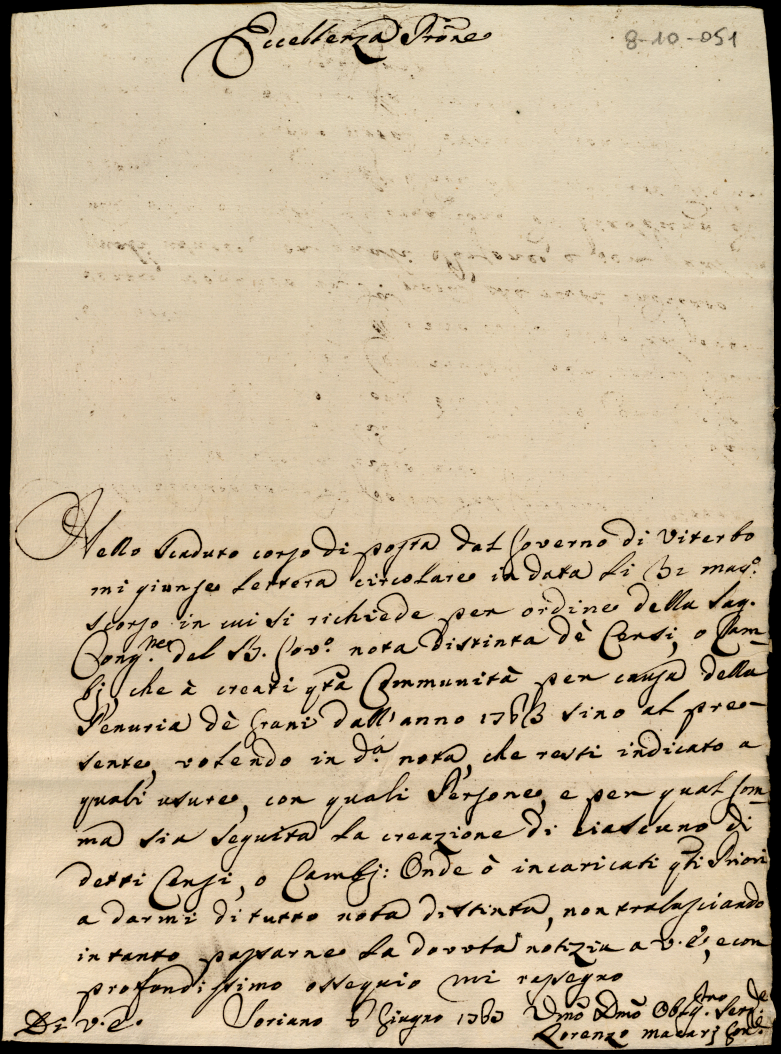 Eccellenza Prõne
8-10-051
Nello scaduto corso di posta dal Governo di Viterbo
mi giunse lettera circolare in data li 31 mag.º
scorso in cui si richiede per ordine della Sag.
Cong.ne del B. Gov.º nota distinta dè Censi, o Cam=
bj, che à creati q̃ta Communità per causa della
Penuria dè Grani dall'anno 1763 sino al pre=
sente, volendo in d.ª nota, che resti indicato a
quali usure, con quali Persone, e per qual som=
ma sia seguita la creazione di ciascuno di
detti Censi, o Cambj: Onde ò incaricati q̃ti Priori
a darmi di tutto nota distinta, non tralasciando
intanto passarne la dovuta notizia a V.E., e con
profondissimo ossequio mi rassegno
Di V.E. Soriano Giugno Umõ Dmõ Obbg.mo Serv.e
Lorenzo Macarj Gov.e